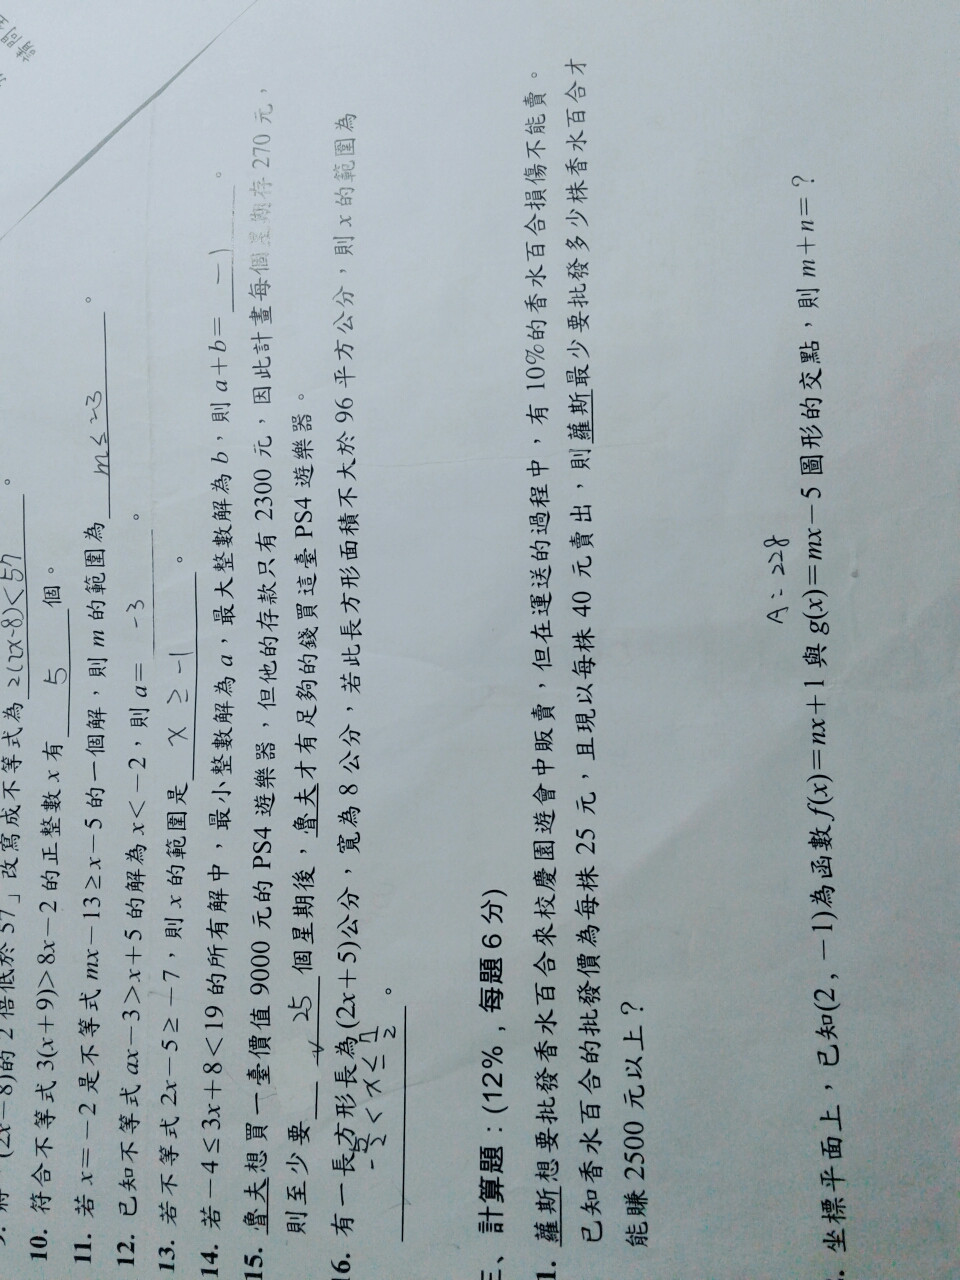 (2x-8)的2倍低於57」改寫成不等式為 2(2x-8)<57 。
10. 符合不等式 3(x+9)>8x-2 的正整數 x 有 5 個。
11. 若 x=-2 是不等式 mx-13≥x-5 的一個解,則 m 的範圍為 m≤-3 。
12. 已知不等式 ax-3>x+5 的解為 x<-2,則 a= -3 。
13. 若不等式 2x-5≥-7,則 x 的範圍是 x≥-1 。
14. 若 -4≤3x+8<19 的所有解中,最小整數解為 a,最大整數解為 b,則 a+b= -1 。
15. 魯夫想買一臺價值 9000 元的 PS4 遊樂器,但他的存款只有 2300 元,因此計畫每個星期存 270 元,
則至少要 25 個星期後,魯夫才有足夠的錢買這臺 PS4 遊樂器。
16. 有一長方形長為(2x+5)公分,寬為 8 公分,若此長方形面積不大於 96 平方公分,則 x 的範圍為
-5/2<x≤7/2 。
三、計算題:(12%,每題 6 分)
1. 蘿斯想要批發香水百合來校慶園遊會中販賣,但在運送的過程中,有 10%的香水百合損傷不能賣。
已知香水百合的批發價為每株 25 元,且現以每株 40 元賣出,則蘿斯最少要批發多少株香水百合才
能賺 2500 元以上?
A:228
坐標平面上,已知(2,-1)為函數 f(x)=nx+1 與 g(x)=mx-5 圖形的交點,則 m+n=?